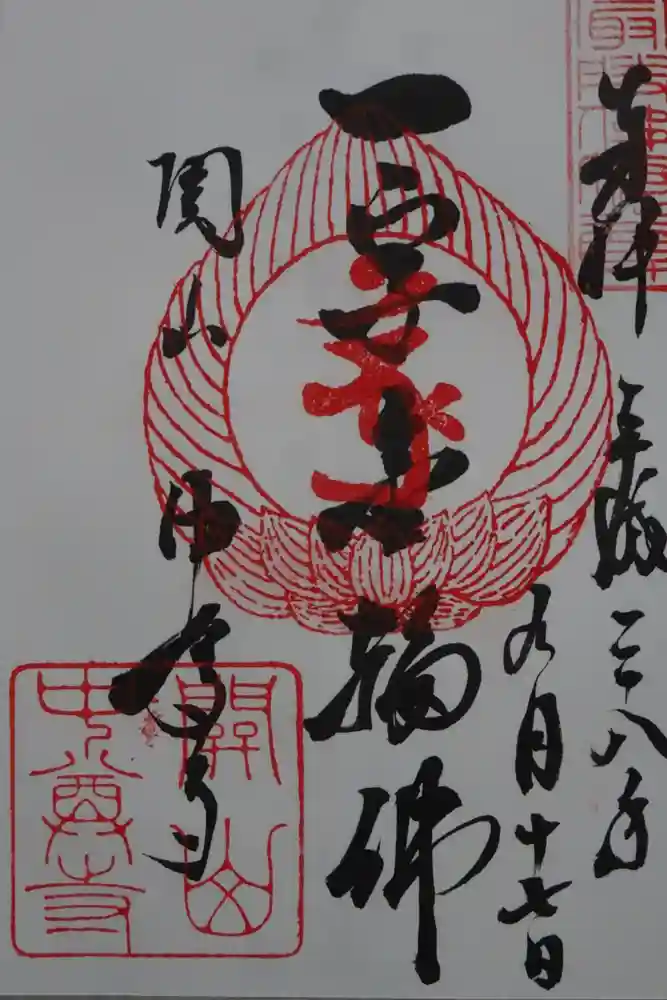 奉拝 平成二十八年
九月十七日
一字金輪佛
関山 中尊寺
關山
中尊寺